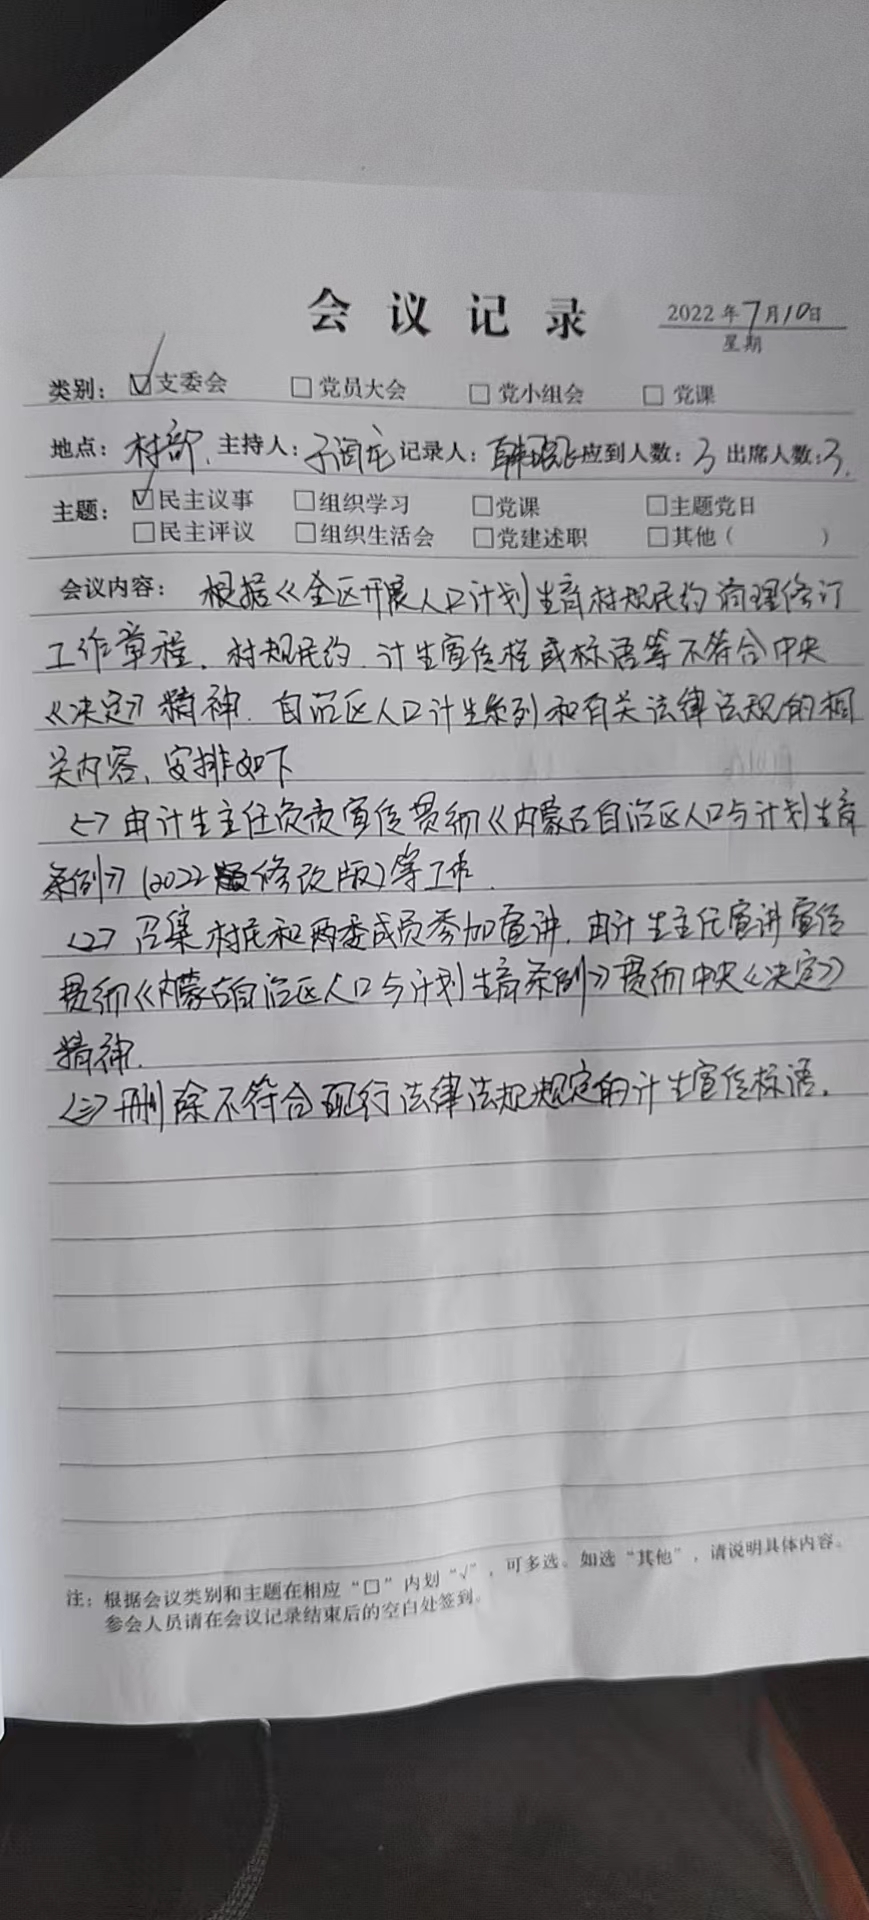 会议记录
2022年7月10日
星期
类别： ☑支委会 □党员大会 □党小组会 □党课
地点：村部. 主持人：于润龙 记录人： 应到人数：3 出席人数：3.
主题： ☑民主议事 □组织学习 □党课 □主题党日
□民主评议 □组织生活会 □党建述职 □其他（ ）
会议内容： 根据《全区开展人口计划生育村规民约清理修订
工作章程. 村规民约. 计生宣传栏或标语等不符合中央
《决定》精神. 自治区人口计生系列和有关法律法规的相
关内容、安排如下
<一> 由计生主任负责宣传贯彻《内蒙古自治区人口与计划生育
条例》(2022 修改版)等工作.
<二> 召集村民和两委成员参加宣讲. 由计生主任宣讲宣传
贯彻《内蒙古自治区人口与计划生育条例》贯彻中央《决定》
精神.
<三> 删除不符合现行法律法规规定的计生宣传标语.
注：根据会议类别和主题在相应“□”内划“√”，可多选。如选“其他”，请说明具体内容。
参会人员请在会议记录结束后的空白处签到。